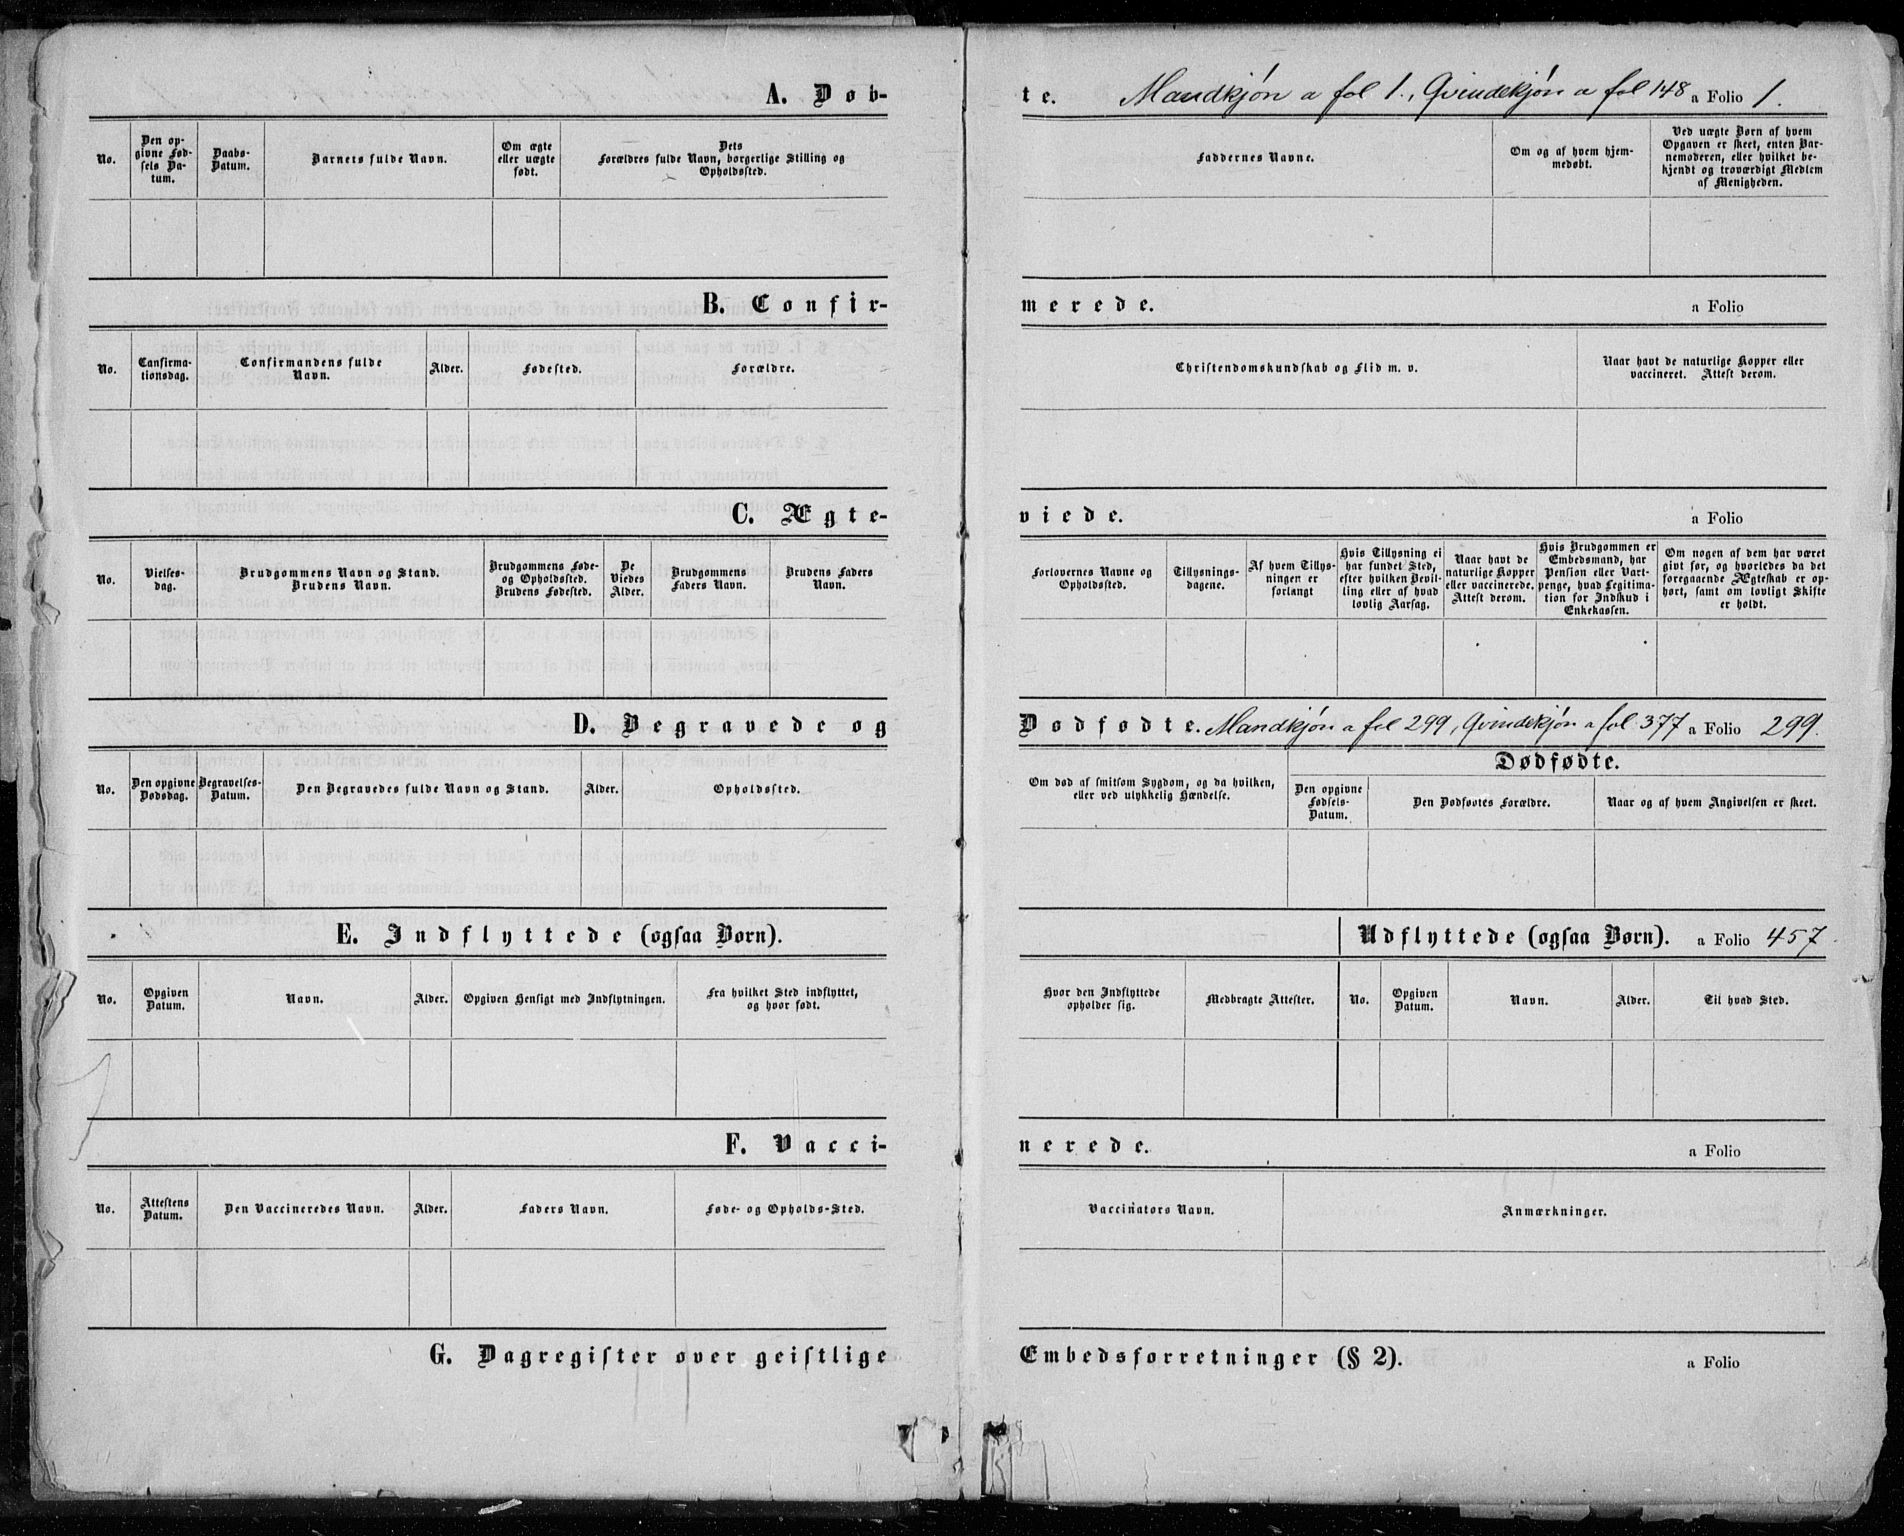 A. Døbte. Mandkjøn a fol 1., Qvindekjøn a fol 148 a Folio 1.
No.
Den opgivne Fødsels Datum.
Daabs-Datum.
Barnets fulde Navn.
Om ægte eller uægte født.
Dets Forældres fulde Navn, borgerlige Stilling og Opholdssted.
Faddernes Navne.
Om og af hvem hjemmedøbt.
Ved uægte Børn af hvem Opgaven er skeet, enten Barnemoderen, eller hvilket bekjendt og troværdigt Medlem af Menigheden.
B. Confirmerede. a Folio
No.
Confirmationsdag.
Confirmandens fulde Navn.
Alder.
Fødested.
Forældre.
Christendomskundskab og Flid m. v.
Naar havt de naturlige Kopper eller vaccineret. Attest derom.
C. Ægteviede. a Folio
No.
Vielsesdag.
Brudgommens Navn og Stand. Brudens Navn.
Brudgommens Føde- og Opholdssted. Brudens Fødested.
De Viedes Alder.
Brudgommens Faders Navn.
Brudens Faders Navn.
Forlovernes Navne og Opholdssted.
Tillysningsdagene.
Af hvem Tillysningen er forlangt
Hvis Tillysning ei har fundet Sted, efter hvilken Bevilling eller af hvad lovlig Aarsag.
Naar havt de naturlige Kopper eller vaccinerede. Attest derom.
Hvis Brudgommen er Embedsmand, har Pension eller Vartpenge, hvad Legitimation for Indskud i Enkekassen.
Om nogen af dem har været givt før, og hvorledes da det foregaaende Ægteskab er ophørt, samt om lovligt Skifte er holdt.
D. Begravede og Dødfødte. Mandkjøn a fol 299, Qvindekjøn a fol. 377 a Folio 299.
No.
Den opgivne Dødsdag.
Begravelses-Datum.
Den Begravedes fulde Navn og Stand.
Alder.
Opholdssted.
Om død af smitsom Sygdom, og da hvilken, eller ved ulykkelig Hændelse.
Dødfødte.
Den opgivne Fødsels-Datum.
Den Dødfødtes Forældre.
Naar og af hvem Angivelsen er skeet.
E. Indflyttede (ogsaa Børn).
Udflyttede (ogsaa Børn). a Folio 457.
No.
Opgiven Datum.
Navn.
Alder.
Opgiven Hensigt med Indflytningen.
Fra hvilket Sted indflyttet, og hvor født.
Hvor den Indflyttede opholder sig.
Medbragte Attester.
No.
Opgiven Datum.
Navn.
Alder.
Til hvad Sted.
F. Vaccinerede. a Folio
No.
Attestens Datum.
Den Vaccineredes Navn.
Alder.
Faders Navn.
Føde- og Opholds-Sted.
Vaccinators Navn.
Anmærkninger.
G. Dagregister over geistlige Embedsforretninger (§ 2). a Folio